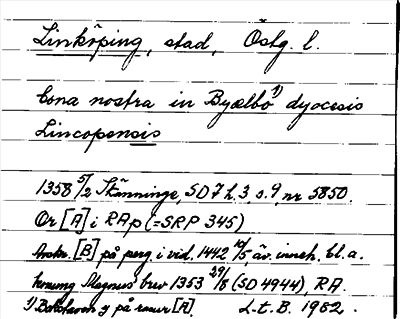 Linköping, stad, Östg. l.
bona nostra in Byælbo 1) dyocesis
Lincopensis
1358 5/2 Skänninge, SD 7 h. 3, s. 9, nr 5850.
Or [A] i RAp (=SRP 345)
Avskr. [B] på perg i vid. 1442 10/5, äv. inneh. bl. a.
konung Magnus' brev 1353 29/8 (SD 4944), RA.
1) Bokstaven y på rasur [A]. L.t.B. 1982.